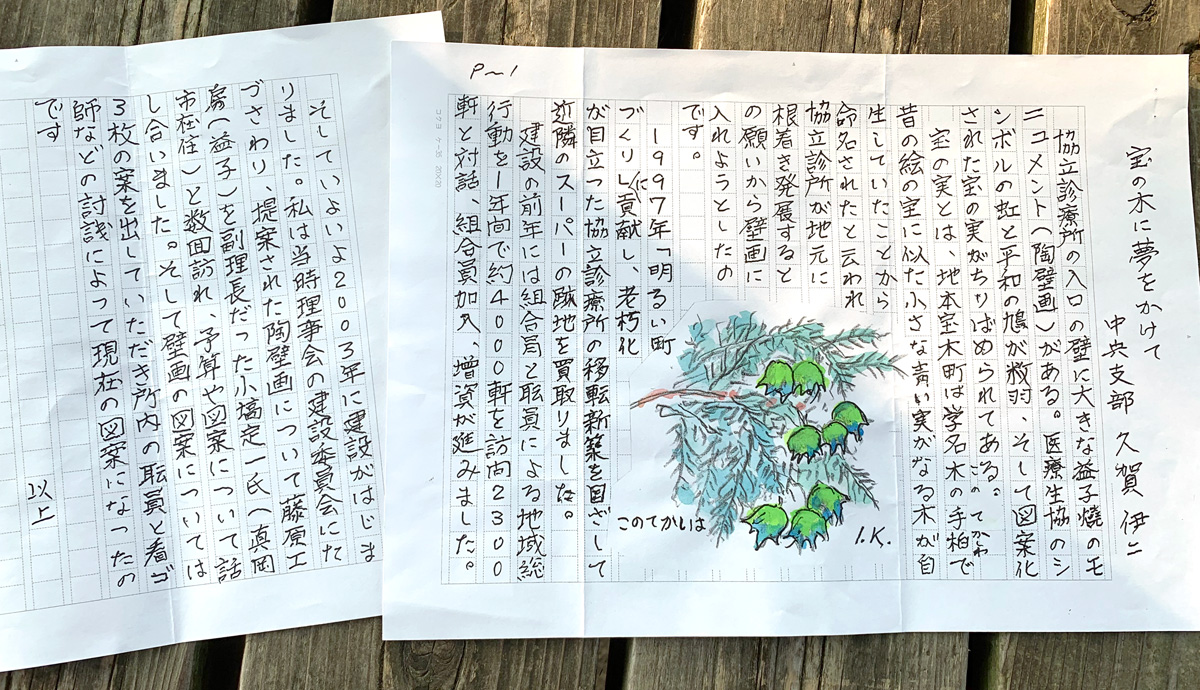 宝の木に夢をかけて
中央支部 久賀 伊二
協立診療所の入口の壁に大きな益子焼のモ
ニュメント(陶壁画)がある。医療生協のシ
ンボルの虹と平和の鳩が数羽、そして図案化
された宝の実がちりばめられてある。
このてかわ
宝の実とは、地本宝木町は学名木の手柏で
昔の絵の宝に似た小さな青い実がなる木が自
生していたことから
命名されたと云われ
協立診療所が地元に
根着き発展すると
の願いから壁画に
入れようとしたの
です。
1997年「明るい町
づくり」に貢献し、老朽化
が目立った協立診療所の移転新築を目ざして
近隣のスーパーの跡地を買取りました。
建設の前年には組合員と職員による地域総
行動を1年間で約4000軒を訪問2300
軒と対話、組合員加入、増資が進みました。
P~1
このてがいは
I.K.
コクヨ ケ-35 20×20
そしていよいよ2003年に建設がはじま
りました。私は当時理事会の建設委員会にた
づさわり、提案された陶壁画について藤原工
房(益子)を副理長だった小塙定一氏(真岡
市在住)と数回訪れ、予算や図案について話
し合いました。そして壁画の図案については
3枚の案を出していただき所内の職員と看ご
師などの討議によって現在の図案になったの
です
以上